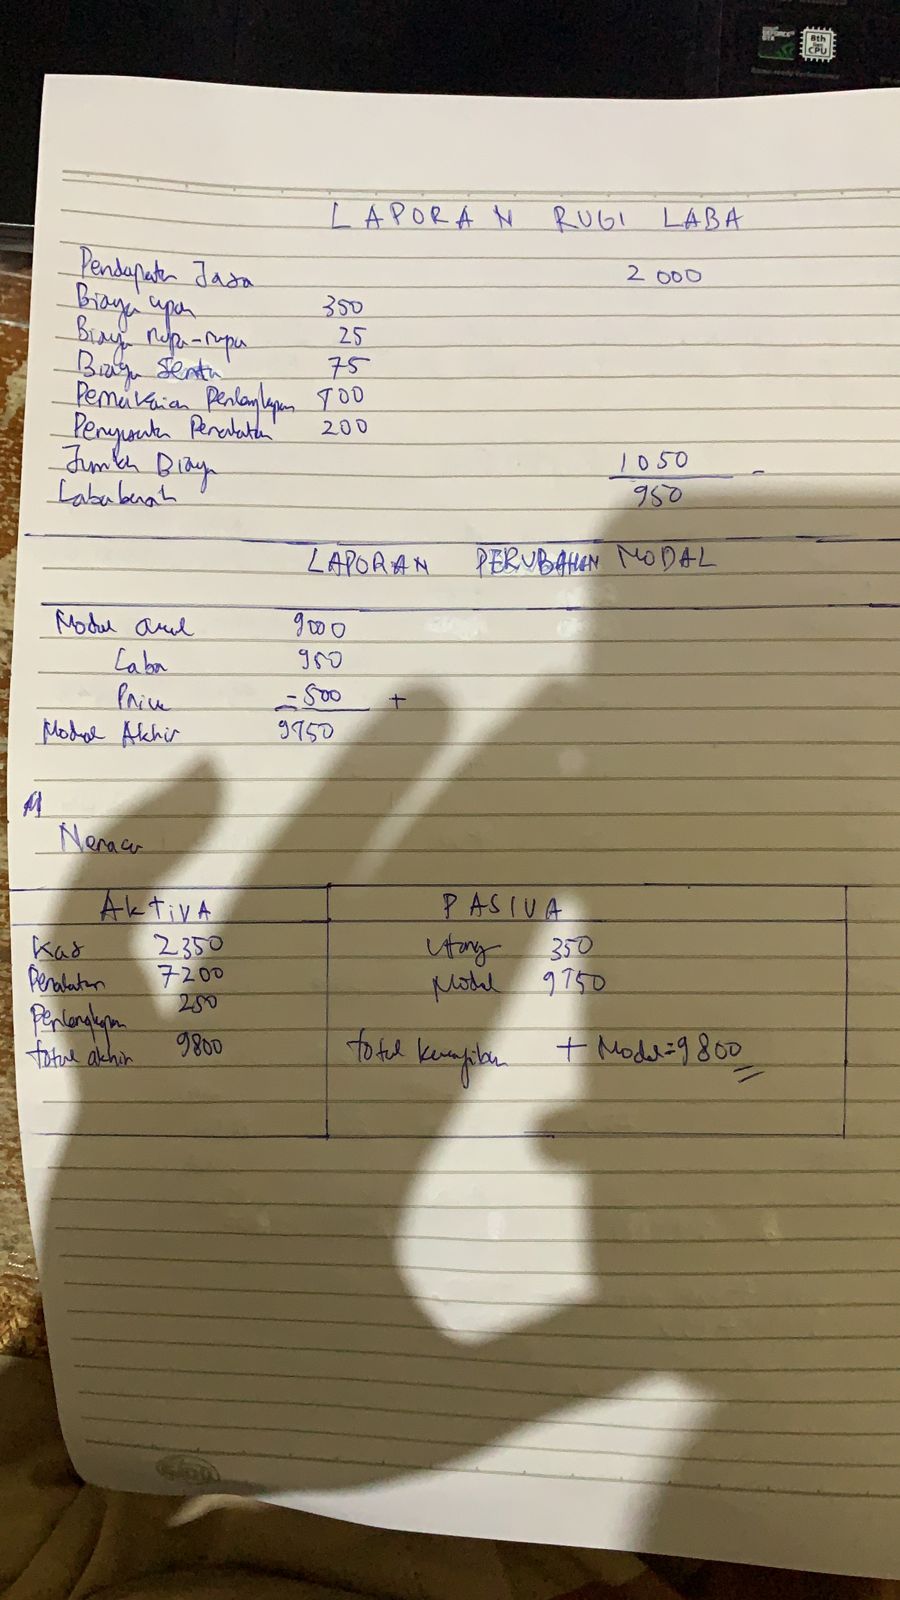 GEFORCE GTX
8th
CPU
LAPORAN RUGI LABA
Pendapatan Jasa 2 000
Biaya upah 350
Biaya rupa-rupa 25
Biaya Sewa 75
Pemakaian Perlengkapan 400
Penyusutan Peralatan 200
Jumlah Biaya 1050 -
Laba bersih 950
LAPORAN PERUBAHAN MODAL
Modal awal 9000
Laba 950
Prive -500 +
Modal Akhir 9450
M
Neraca
AKtiVA PASIVA
Kas 2350 Utang 350
Peralatan 7200 Modal 9450
Perlengkapan 250
total akhir 9800 total kewajiban + Modal=9800